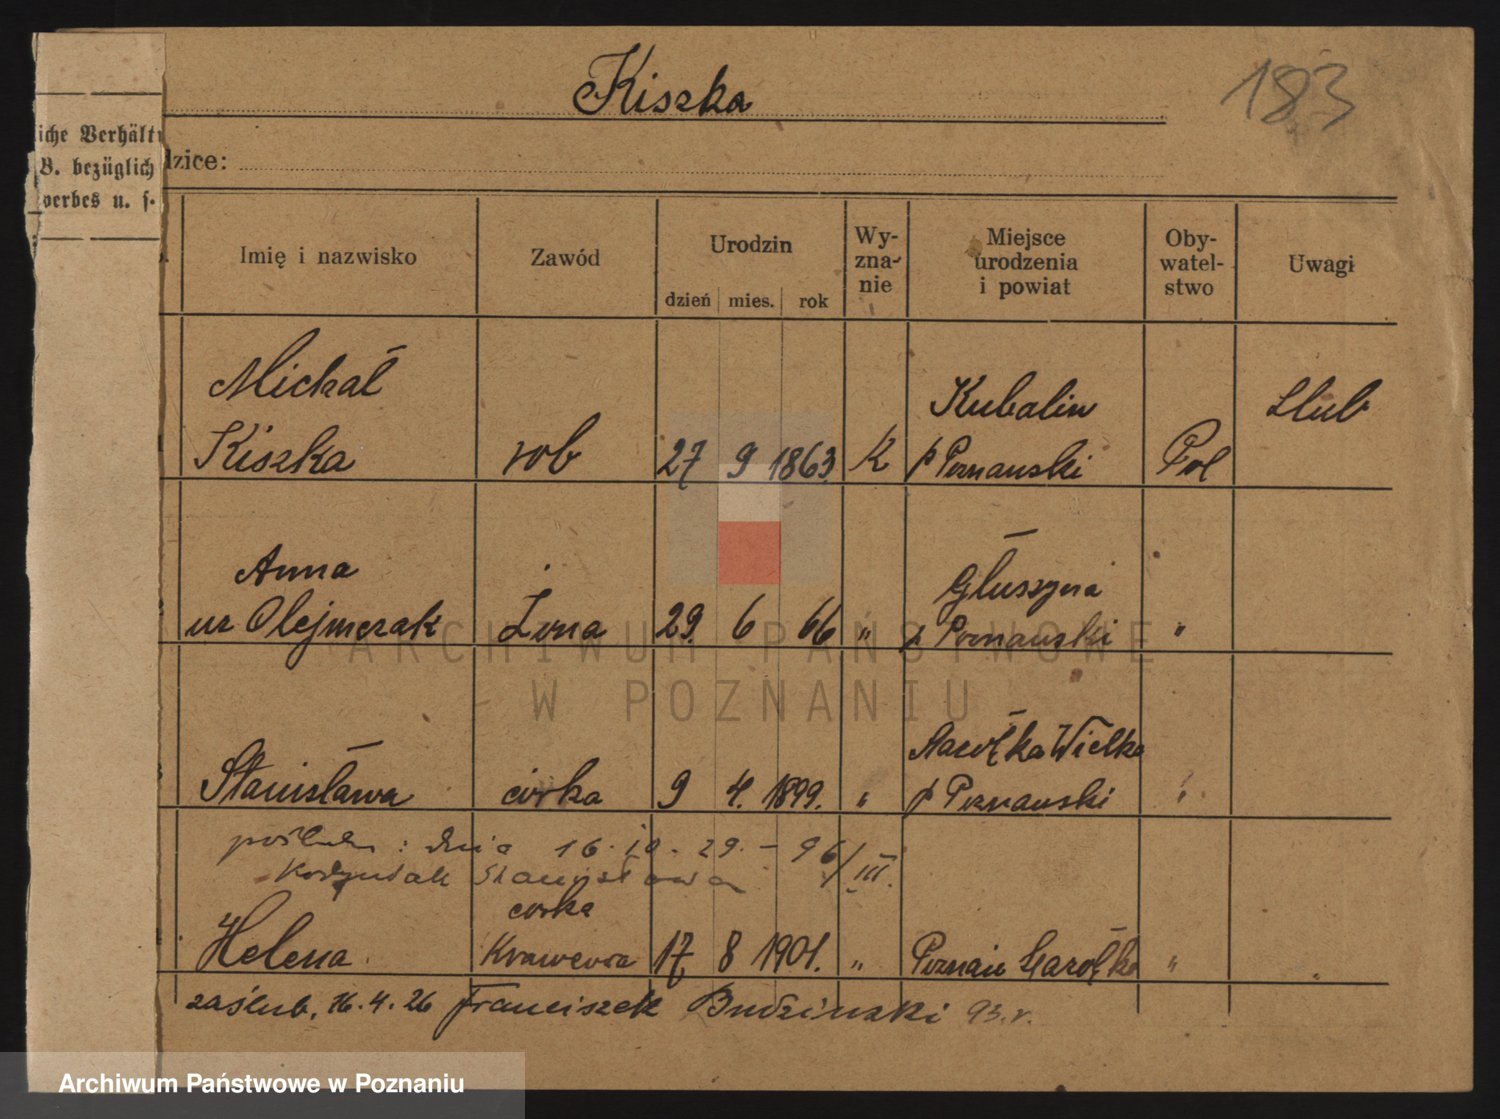 Kiszka
183
liche Verhältn
B. bezüglich
verbes u. s.
dzice:
Imię i nazwisko
Zawód
Urodzin
dzień mies. rok
Wy-
zna-
nie
Miejsce
urodzenia
i powiat
Oby-
watel-
stwo
Uwagi
Michał
Kiszka rob 27 9 1863. K
Kubalin
p Poznański
Pol
Ślub
Anna
ur Olejniczak Żona 29. 6 66 "
Głuszyna
p Poznański "
Stanisława córka 9 4. 1899. "
Narołka Wielka
p Poznański "
poślubn : dnia 16.10.29. – 96/III.
Stanisława
córka
Helena Krawcowa 17 8 1901. " Poznań "
zaślub. 16.4.26 Franciszek Budziński 93.r.
ARCHIWUM PAŃSTWOWE
W POZNANIU
Archiwum Państwowe w Poznaniu